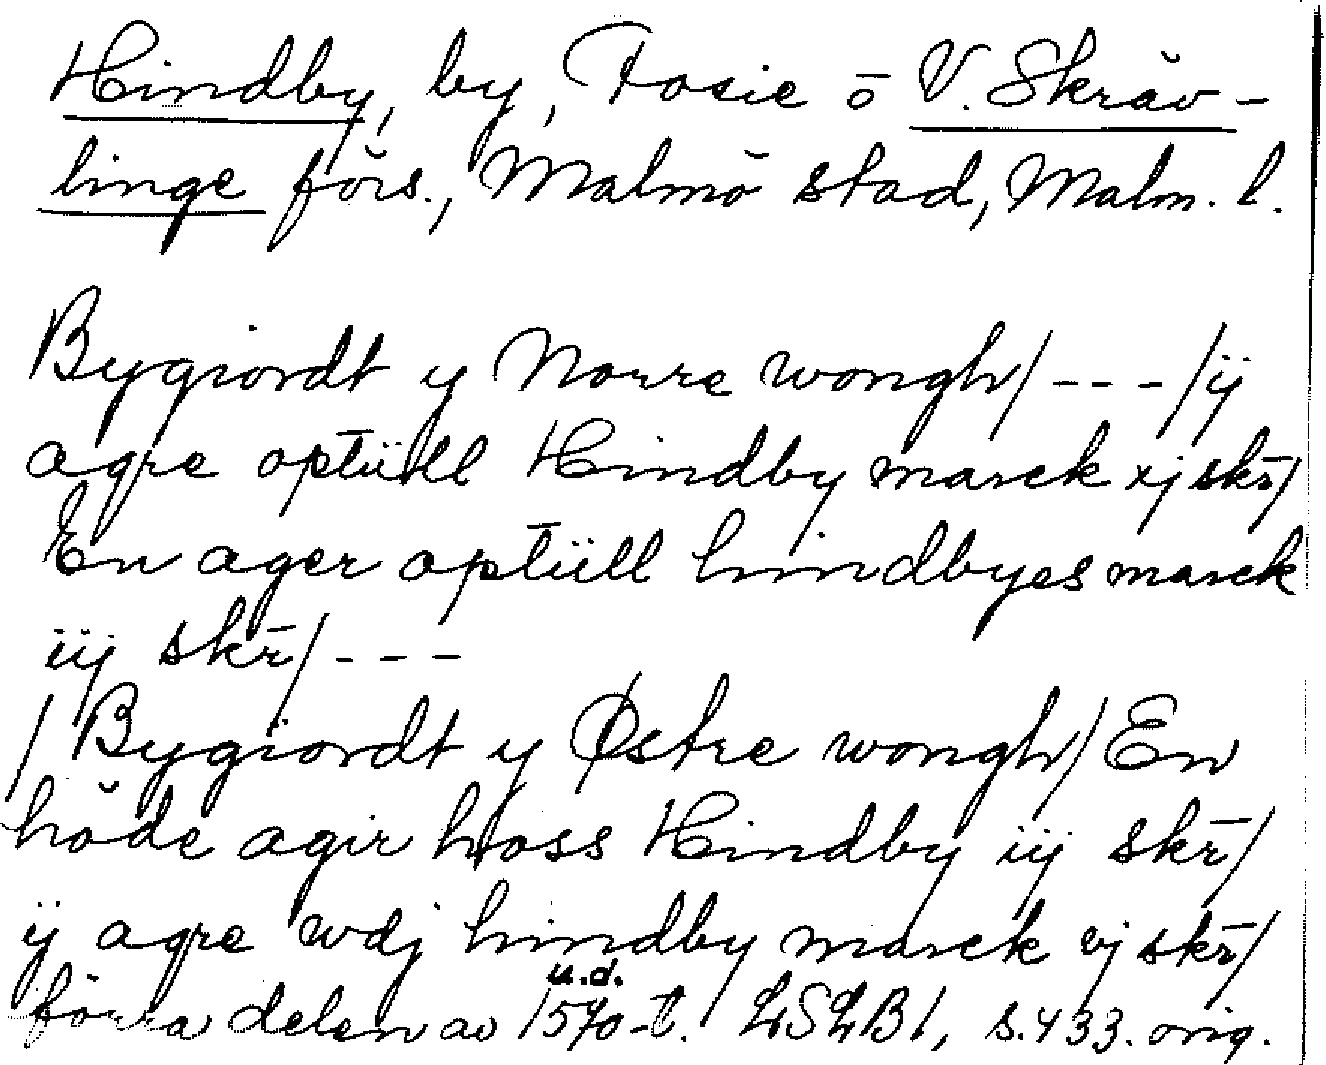 Hindby, by, Fosie o V. Skräv-
linge förs., Malmö stad, Malm. l.
Bygiordt y Norre wongh/ - - - /ij
agre optüll Hindby marck xj skr̄/
En ager optüll hindbyes marck
iij skr̄/ - - -
/Bygiordt y Østre wongh/ En
höde agir hoss Hindby iij skr̄/
ij agre wdj hindby marck vj skr̄/
u.d.
förra delen av 1570-t. LSLB1, s. 433. orig.